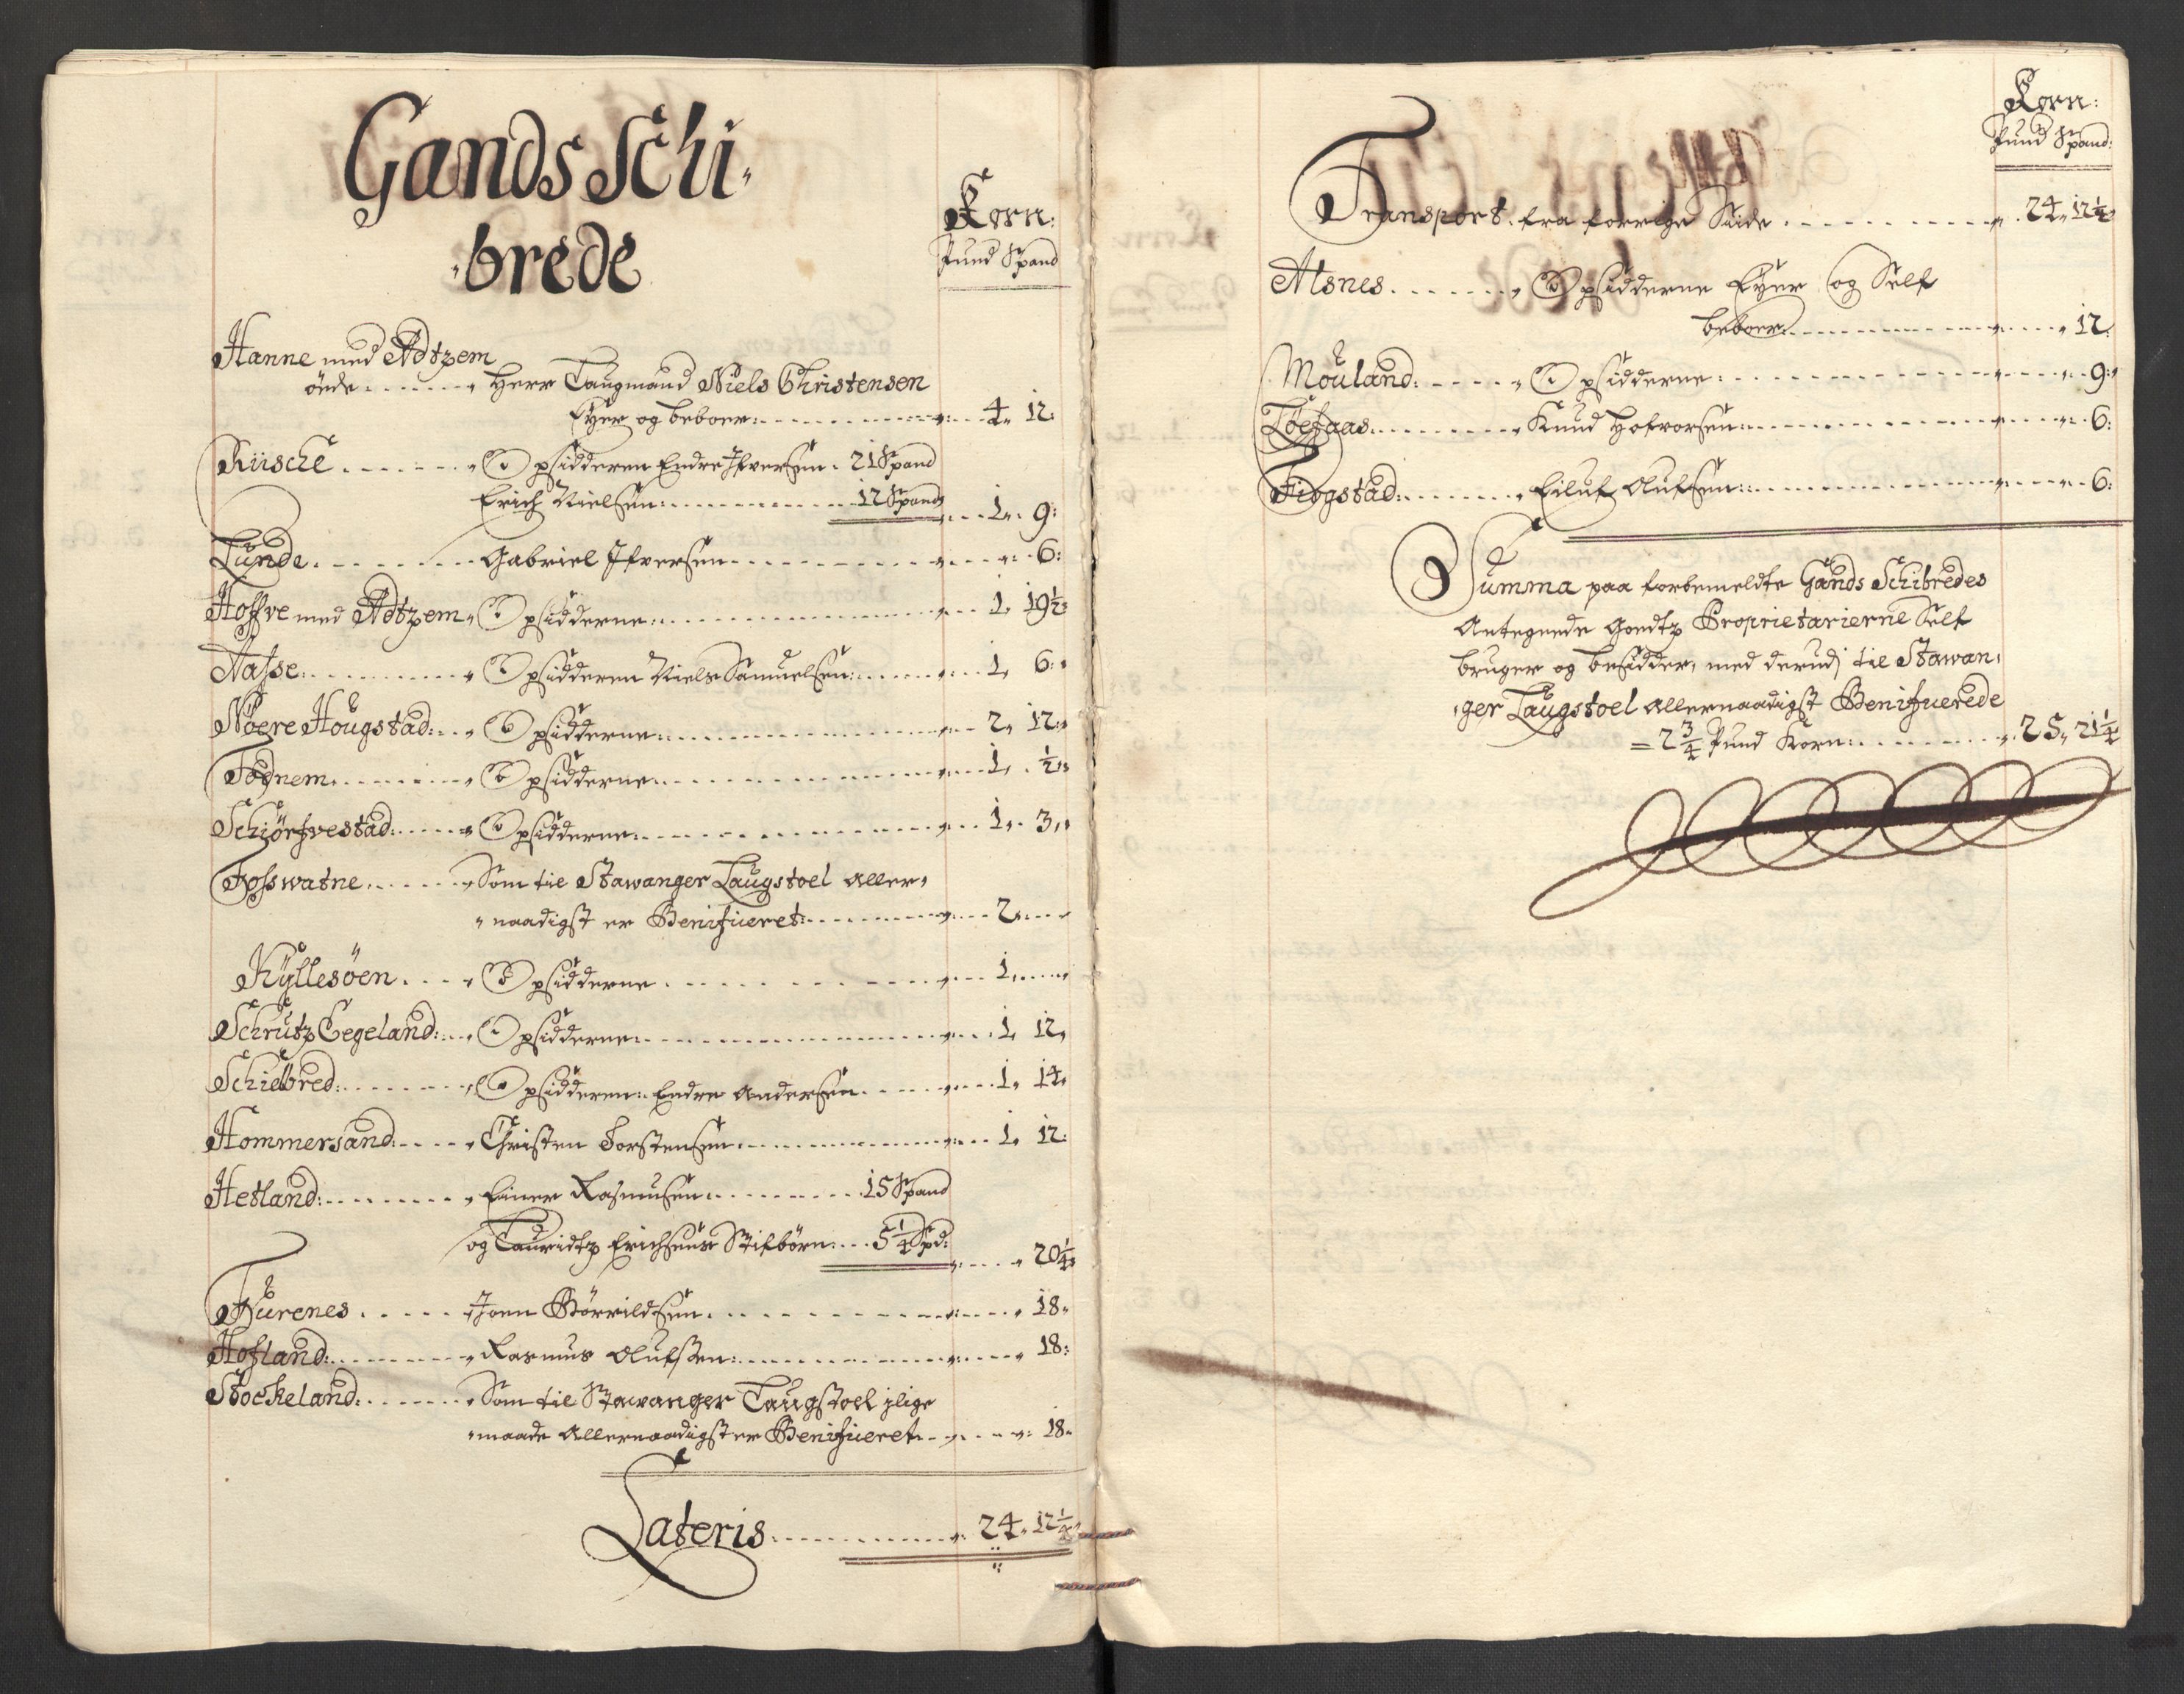 Gands Schi„
„brede
Korn:
Pund Spand
Hanne med Ødtzem
öede . . . . . Herr Laugmand Niels Christensen
Eyer og beboer: . . . 4„ 12:
Riische . . . . . Opsidderen Endre Ifversen . 21 Spand
Erich Nielsen: . . . 12 Spand . . . 1„ 9:
Lunde . . . . . Gabriel Ifversen . . . 6:
Hoffve med Ødtzem„ Opsidderne: . . . 1„ 19½:
Aasse: . . . . . Opsidderen Niels Samuelsen: . . . 1„ 6:„
Nöere Hougstad: . . . Opsidderne: . . . 2„ 12:„
Fognem . . . . . Opsidderne: . . . 1„ ½:„
Schiörfvestad: . . . Opsidderne: . . . 1„ 3„„
Foss watne . . . . . Som til Stawanger Laugstoel Aller„
„naadigst er Benificeret: . . . 2„
Kyllesöen . . . Opsidderne . . . 1„
Schrutz Eegeland: . . . Opsidderne: . . . 1„ 12„
Schielbred: . . . Opsidderen: Endre Andersen . . . 1„ 14„
Hommersand: . . . Christen Torstensen . . . 1„ 12:
Hetland: . . . Einer Rasmusen: . . . 15 Spand
og Lauridtz Erichsens Stifbörn: . . 5¼ Spd: . . . 20¼:
Furenes . . . Joen Börrildsen . . . 18„
Hofland: . . . Rasmus Olufsen: . . . 18:
Stockeland: . . . Som til Stawanger Laugstoel jlige
„maade Allernaadigst er Benificeret . . . 18„
Lateris . . . 24„ 12¼„
Korn:
Pund Spand:
Transport fra forrige Side . . . 24„ 12¼„
Alsnes . . . Opsidderne Eyer og Self
beboer . . . 12„
Mouland: . . . Opsidderne: . . . 9:„
Knud . . . 6:
Eiluf Olufsen: . . . 6:
Summa paa forbemeldte Gands Schibredes
Antegnede Goedtz Proprietarierne Self
bruger og besidder, med derudj til Stawan„
„ger Laugstoel Allernaadigst Benificerede
= 2¾ Pund Korn: . . . 25„ 21¼